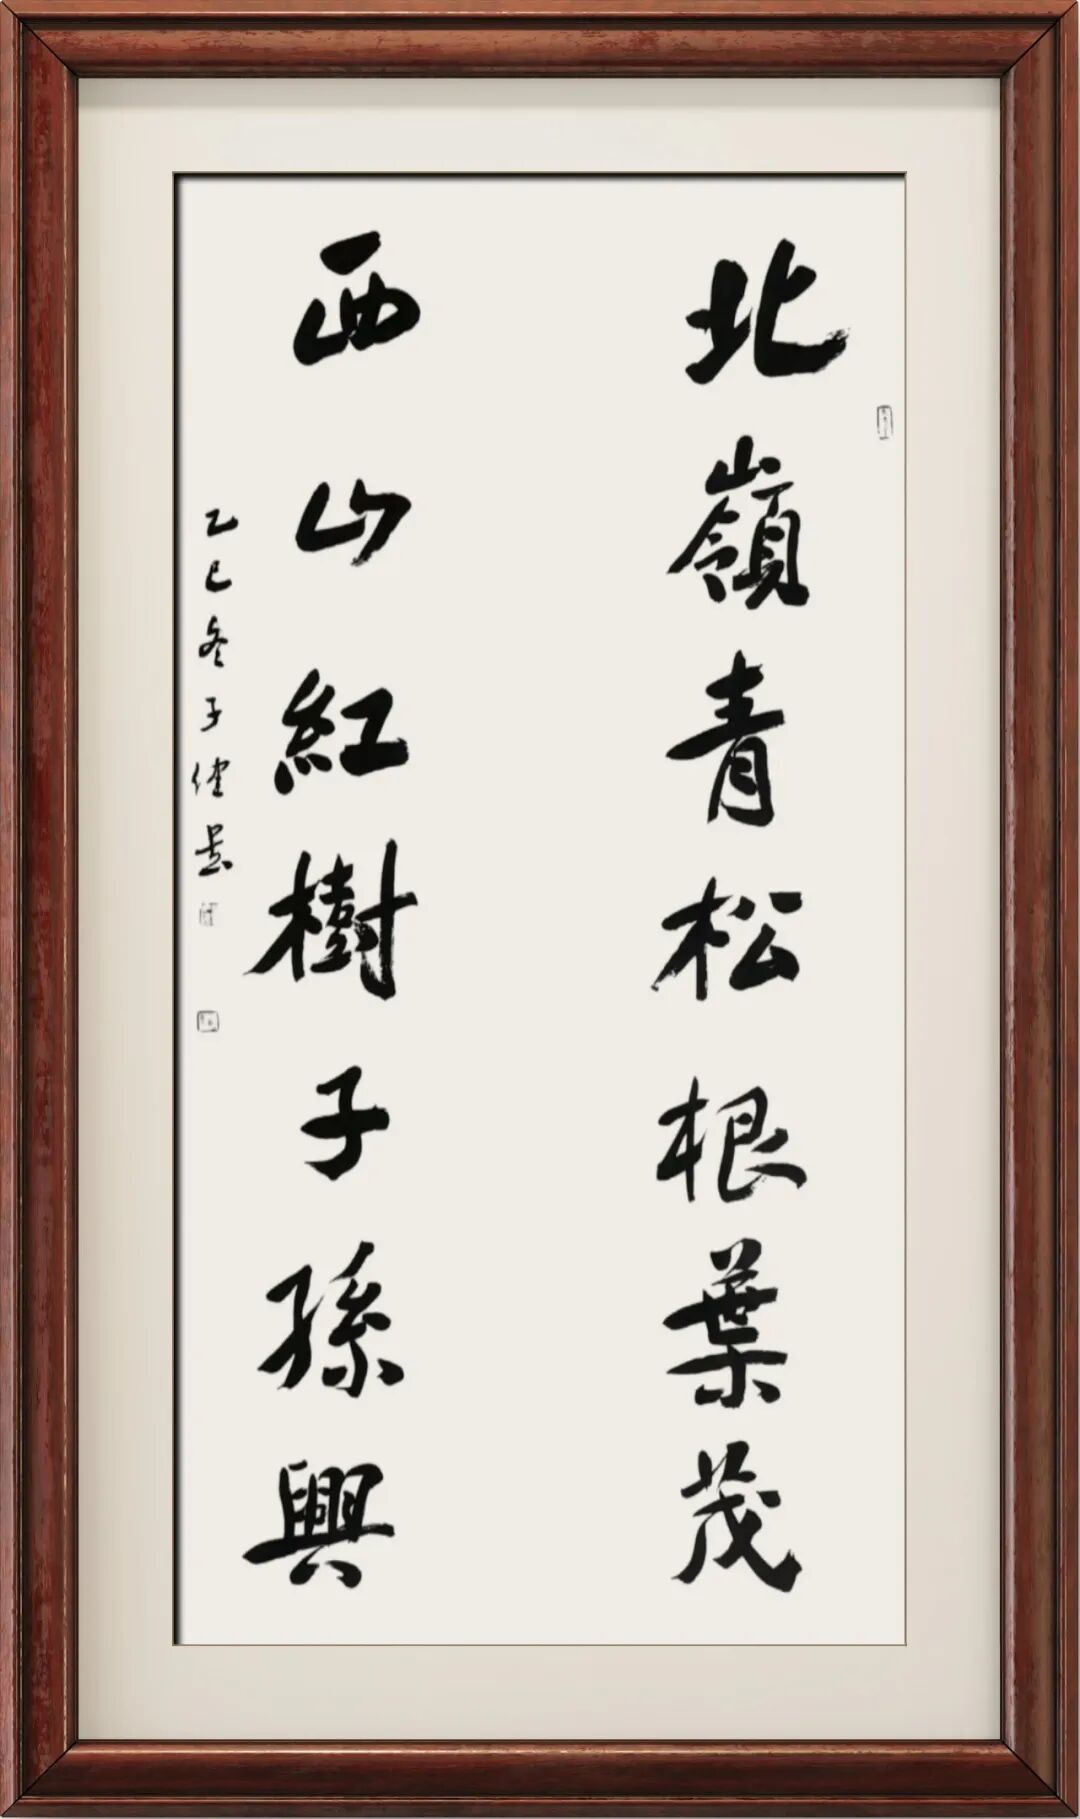 北嶺青松根葉茂
西山紅樹子孫興
乙巳冬子健書